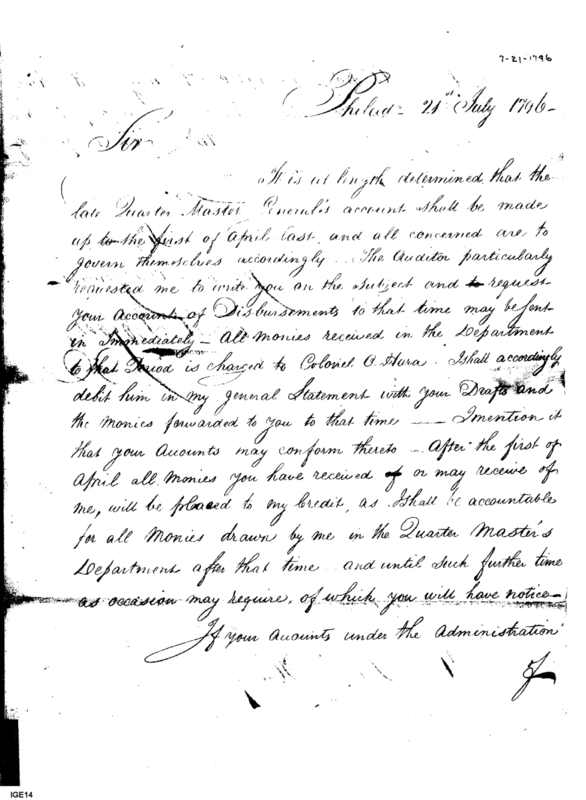 7-21-1796
Philad- 21st July 1796-
Sir
It is at length determined that the
late Quarter Master General's account shall be made
up to the first of April last, and all concerned are to
govern themselves accordingly. The Auditor particularly
requested me to write you on the subject and to request
your Account of Disbursements to that time may be sent
in Immediately - All monies received in the Department
to that Period is charged to Colonel O Hara. I shall accordingly
debit him in my general Statement with your Drafts and
the monies forwarded to you to that time — I mention it
that your Accounts may conform thereto - After the first of
April all monies you have received of or may receive of
me, will be placed to my Credit, as I shall be accountable
for all Monies drawn by me in the Quarter Master's
Department after that time and until such further time
as occasion may require, of which you will have notice-
If your Accounts under the Administration
of
IGE14